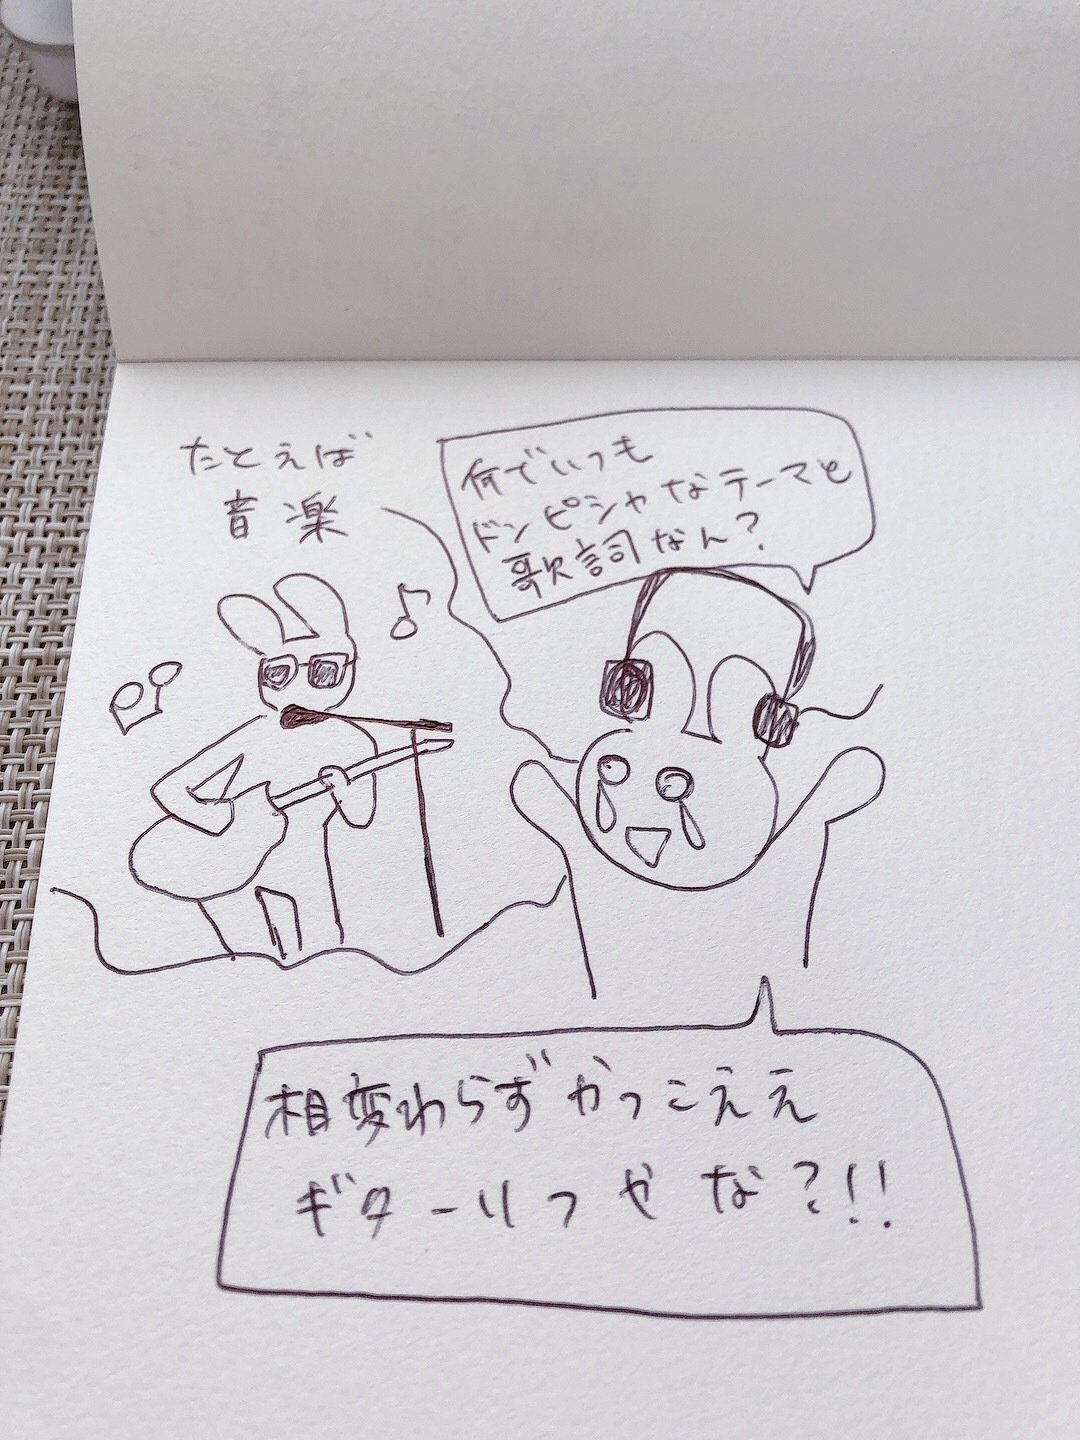 たとえば
音楽
何でいつも
ドンピシャなテーマと
歌詞なん?
相変わらずかっこええ
ギターリフやな?!!